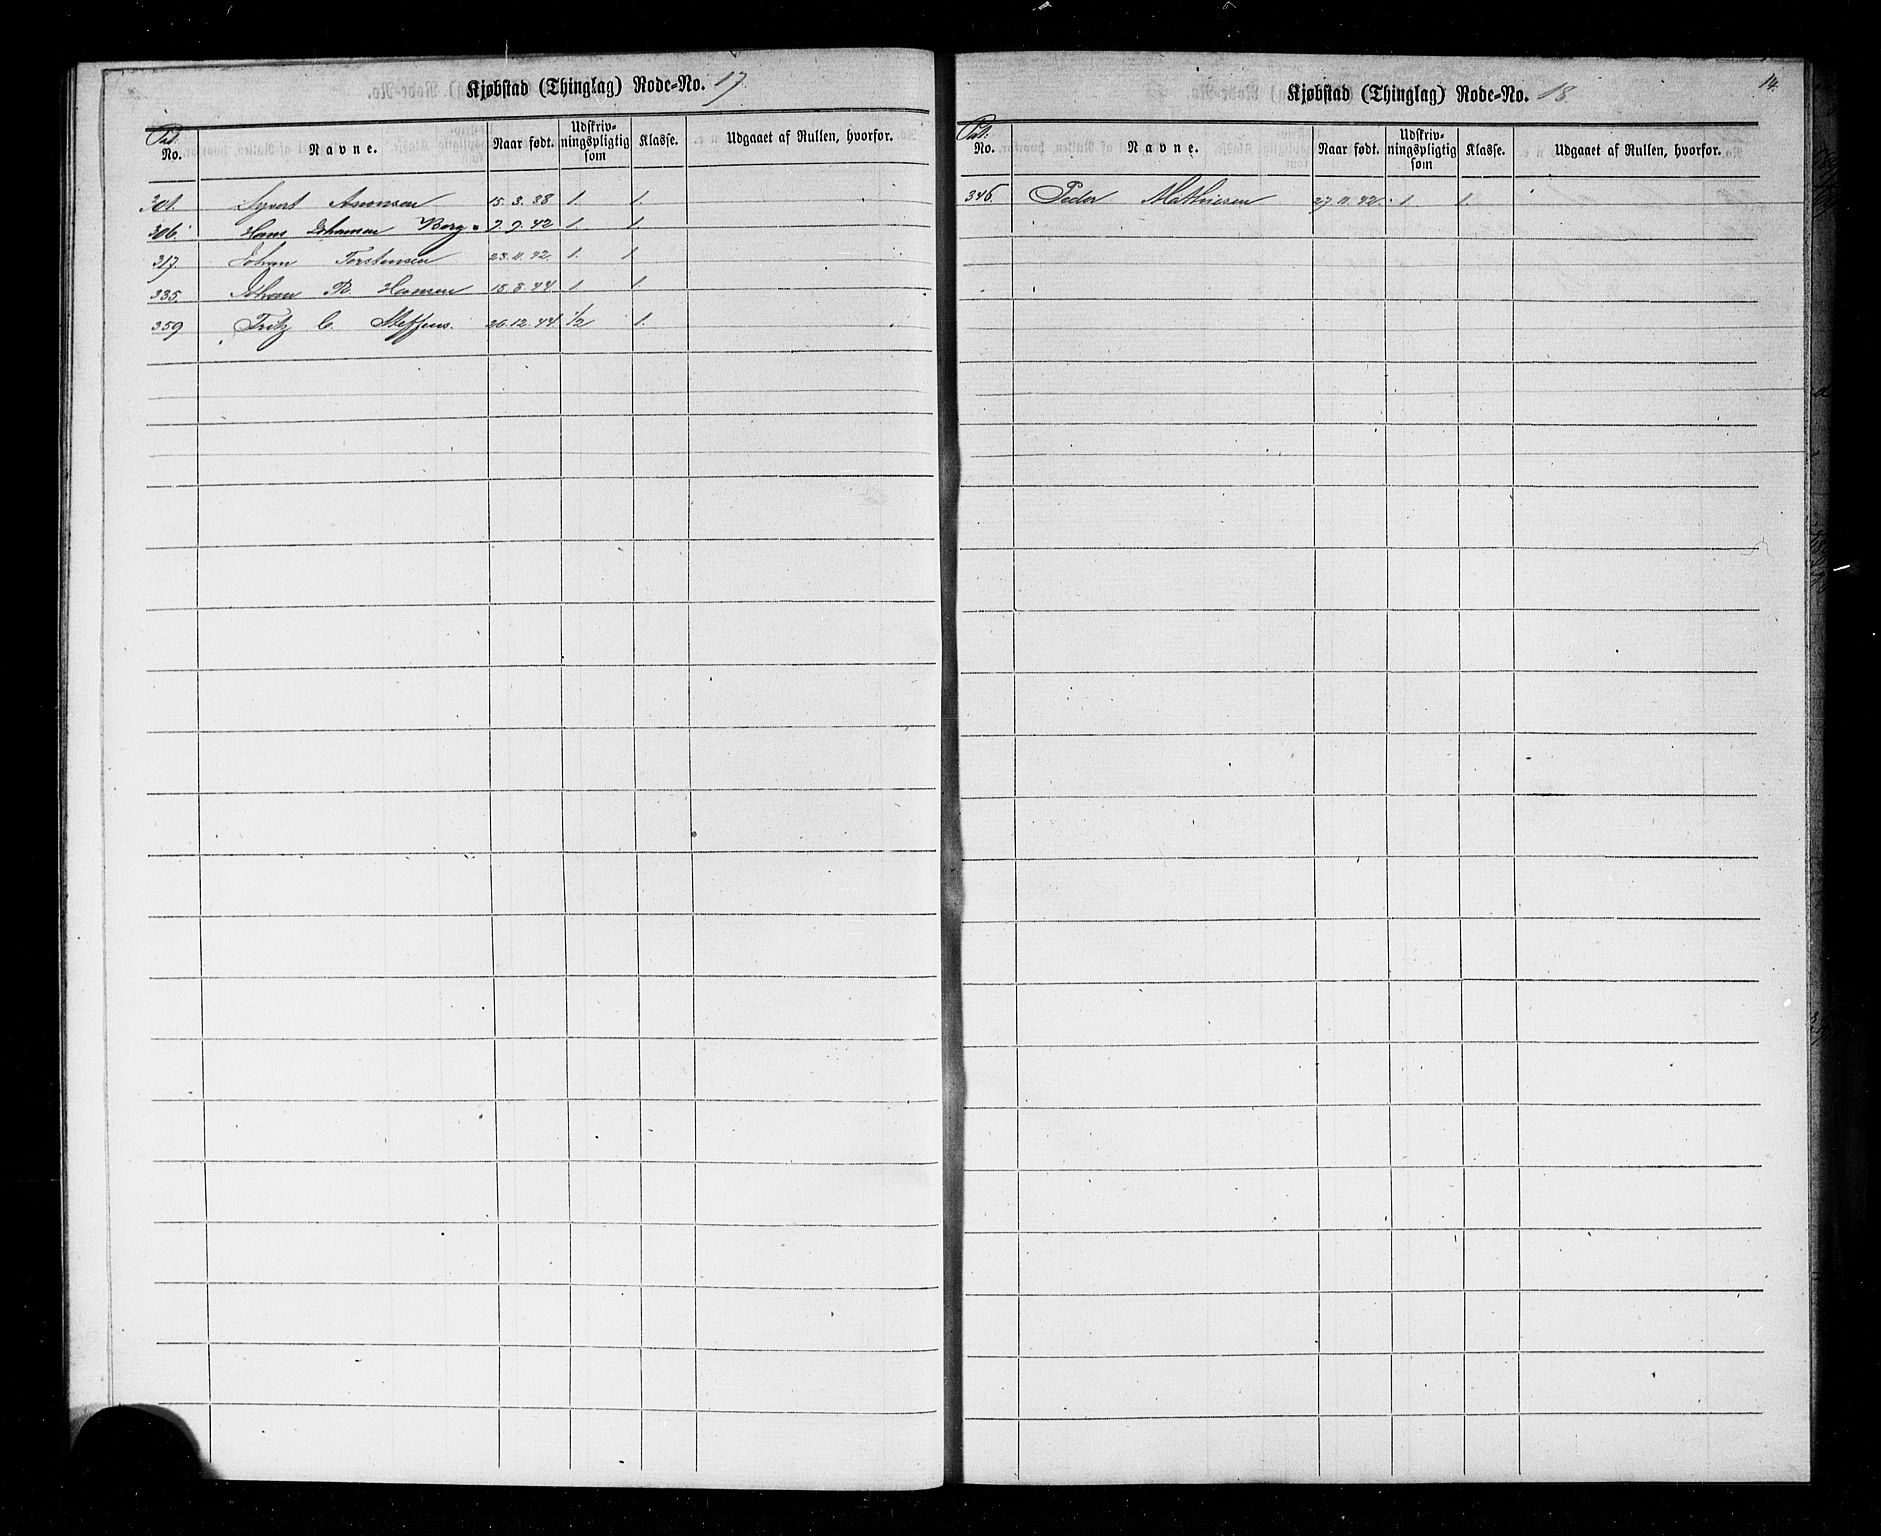 Kjøbstad (Thinglag) Rode-No. 17
Pat. No. Navne. Naar født. Udskriv-ningspligtig som Klasse. Udgaaet af Rullen, hvorfor.
301. Syvert Asmonsen 15.3.38 1. 1.
306. Hans Johansen Berg 7.9.42 1. 1.
317. Johan Torstensen 23.11.42. 1. 1
335. Johan R. Hansen 15.8.44 1 1.
359 Fritz C. Steffens. 26.12.44 1/2 1.
14.
Kjøbstad (Thinglag) Rode-No. 18
Pat. No. Navne. Naar født. Udskriv-ningspligtig som Klasse. Udgaaet af Rullen, hvorfor.
346. Peder Mathiesen 27.11.42. 1. 1.